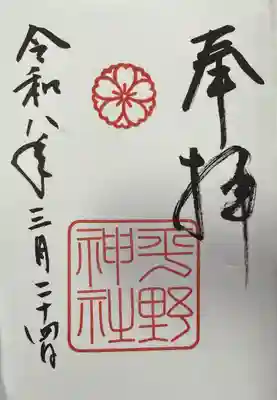 奉拝
平野
神社
令和八年三月二十四日